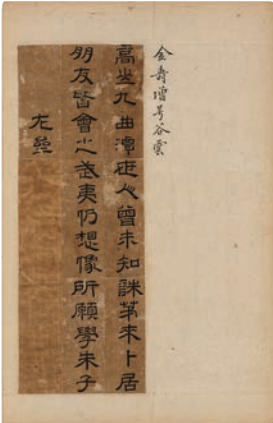 金壽增号谷雲
高山九曲潭世人曾未知誅茅來卜居
朋友皆會之武夷仍想像所願學朱子
尤菴